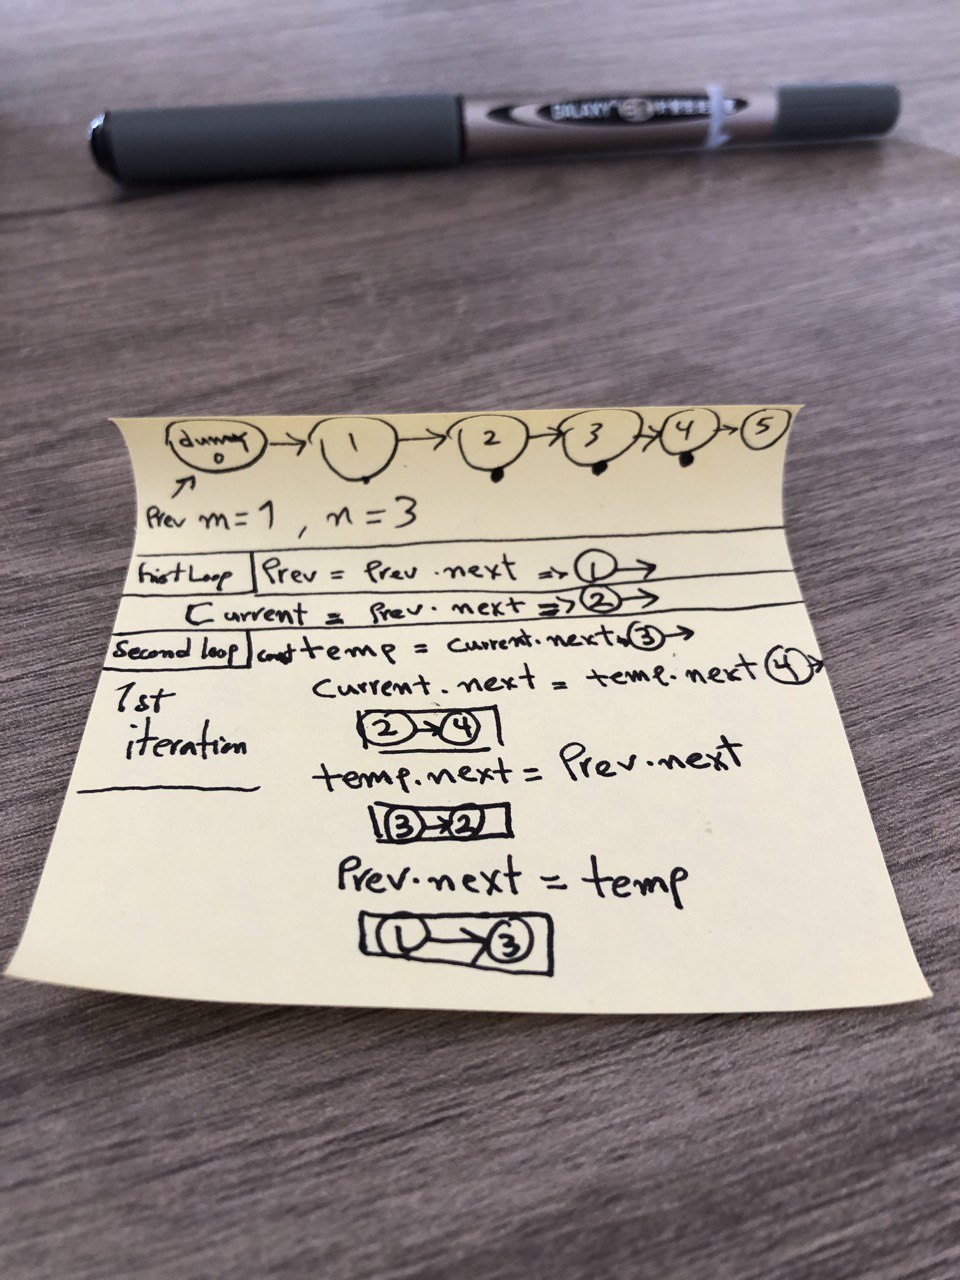 GALAXY
dummy 0 → 1 → 2 → 3 → 4 → 5
Prev m=1 , n=3
First Loop Prev = Prev.next => 1 →
Current = Prev.next => 2 →
Second loop const temp = current.next 3 →
Current.next = temp.next 4 →
1st
iteration
2 → 4
temp.next = Prev.next
3 → 2
Prev.next = temp
1 → 3